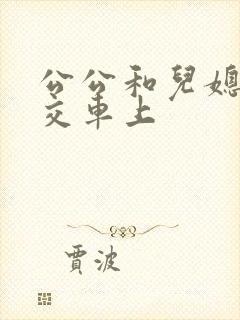 公公和兒媳
交車上
賈波